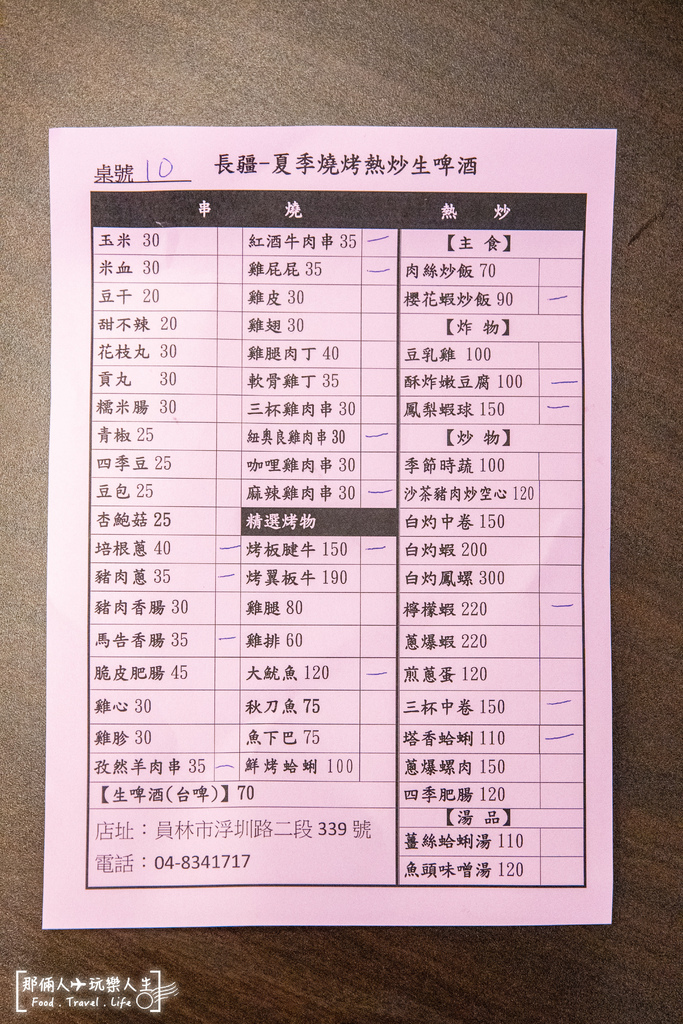 桌號 10
長疆-夏季燒烤熱炒生啤酒
串 燒
玉米 30
米血 30
豆干 20
甜不辣 20
花枝丸 30
貢丸 30
糯米腸 30
青椒 25
四季豆 25
豆包 25
杏鮑菇 25
培根蔥 40 一
豬肉蔥 35 一
豬肉香腸 30
馬告香腸 35 一
脆皮肥腸 45
雞心 30
雞胗 30
孜然羊肉串 35 一
紅酒牛肉串 35 一
雞屁屁 35 一
雞皮 30
雞翅 30
雞腿肉丁 40
軟骨雞丁 35
三杯雞肉串 30
紐奧良雞肉串 30 一
咖哩雞肉串 30
麻辣雞肉串 30 一
精選烤物
烤板腱牛 150 一
烤翼板牛 190
雞腿 80
雞排 60
大魷魚 120 一
秋刀魚 75
魚下巴 75
鮮烤蛤蜊 100
【生啤酒(台啤)】70
店址：員林市浮圳路二段 339 號
電話：04-8341717
熱 炒
【主 食】
肉絲炒飯 70
櫻花蝦炒飯 90 一
【炸 物】
豆乳雞 100
酥炸嫩豆腐 100 一
鳳梨蝦球 150 一
【炒 物】
季節時蔬 100
沙茶豬肉炒空心 120
白灼中卷 150
白灼蝦 200
白灼鳳螺 300
檸檬蝦 220 一
蔥爆蝦 220
煎蔥蛋 120
三杯中卷 150 一
塔香蛤蜊 110 一
蔥爆螺肉 150
四季肥腸 120
【湯 品】
薑絲蛤蜊湯 110
魚頭味噌湯 120
那倆人✈玩樂人生
Food . Travel . Life